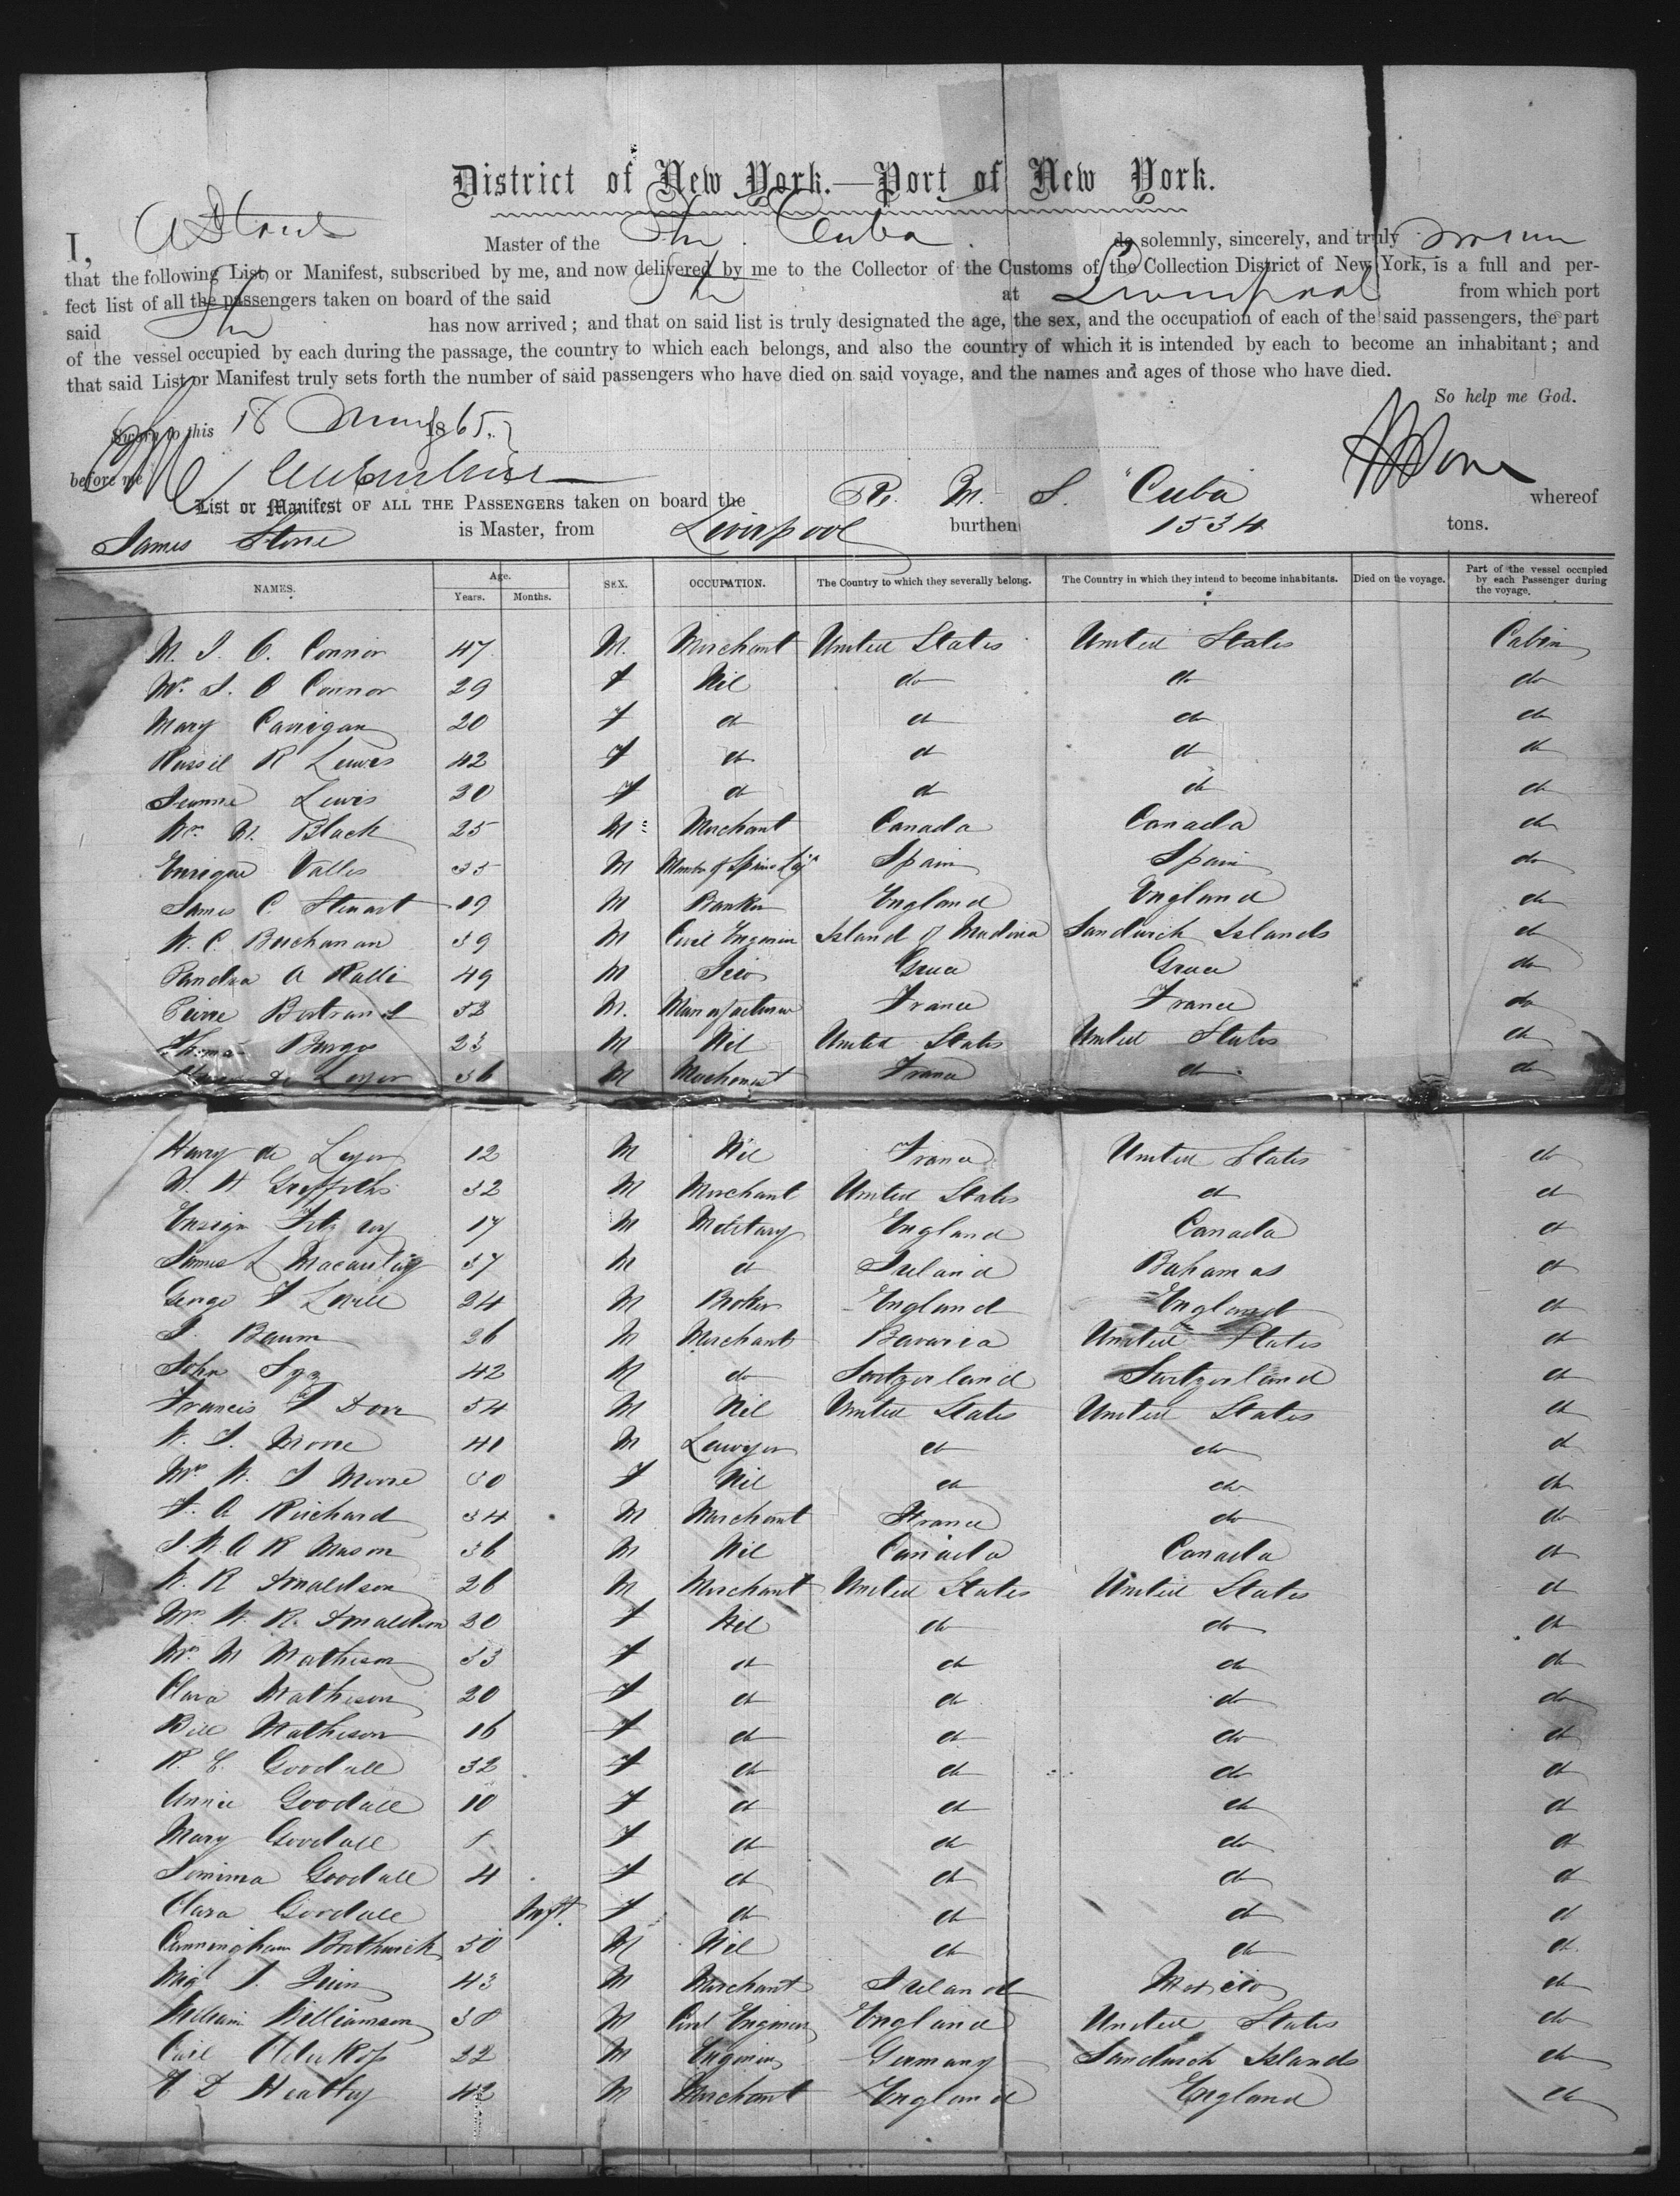 District of New York.—Port of New York.
I, Master of the Str. Cuba do solemnly, sincerely, and truly swear
that the following List or Manifest, subscribed by me, and now delivered by me to the Collector of the Customs of the Collection District of New York, is a full and per-
fect list of all the passengers taken on board of the said Str at Liverpool from which port
said Str has now arrived; and that on said list is truly designated the age, the sex, and the occupation of each of the said passengers, the part
of the vessel occupied by each during the passage, the country to which each belongs, and also the country of which it is intended by each to become an inhabitant; and
that said List or Manifest truly sets forth the number of said passengers who have died on said voyage, and the names and ages of those who have died.
So help me God.
Sworn to this 18 1865
before me
List or Manifest OF ALL THE PASSENGERS taken on board the R. M. S. "Cuba" whereof
James Stone is Master, from Liverpool burthen 1534 tons.
NAMES. Age. Years. Months. SEX. OCCUPATION. The Country to which they severally belong. The Country in which they intend to become inhabitants. Died on the voyage. Part of the vessel occupied by each Passenger during the voyage.
M. J. O. Connor 47 M. Merchant United States United States Cabin
Mrs. J. O Connor 29 F Nil do do do
Mary Carrigan 20 F do do do do
Russil R Lewis 42 F do do do do
Jeanne Lewis 30 F do do do do
Wm. M. Black 25 M Merchant Canada Canada do
Enrique Valles 35 M Spain Spain do
James C. Stewart 19 M Banker England England do
W. C. Buchanan 39 M Civil Engineer Island of Madeira Sandwich Islands do
Pandia A Ralli 49 M Greece Greece do
Pierre Bertrand 52 M. Manufacturer France France do
Thomas 23 M Nil United States United States do
de Leyer 36 M Merchant France do do
Harry de Leyer 12 M Nil France United States do
W. H Griffiths 32 M Merchant United States do do
Ensign Fitzroy 17 M Military England Canada do
James L Macaulay 37 M do Ireland Bahamas do
George F Lovell 24 M Broker England England do
J. Baum 26 M Merchant Bavaria United States do
John Syz 42 M do Switzerland Switzerland do
Francis F Dorr 54 M Nil United States United States do
W. J. Moore 41 M Lawyer do do do
Mrs W. J Moore 30 F Nil do do do
F. A Richard 34 M Merchant France do do
J. W. A R Mason 36 M Nil Canada Canada do
W. R Donaldson 26 M Merchant United States United States do
Mrs W. R. Donaldson 20 F Nil do do do
Mrs M Mathison 53 F do do do do
Clara Mathison 20 F do do do do
Bell Mathison 16 F do do do do
R. E. Goodall 32 F do do do do
Annie Goodall 10 F do do do do
Mary Goodall F do do do do
Jemima Goodall 4 F do do do do
Clara Goodall Inft. F do do do do
Cunningham Borthwick 50 M Nil do do do
J. Quin 43 M Merchant Ireland Mexico do
William Williamson 30 M Civil Engineer England United States do
22 M Engineer Germany Sandwich Islands do
F D Heatley 42 M Merchant England England do